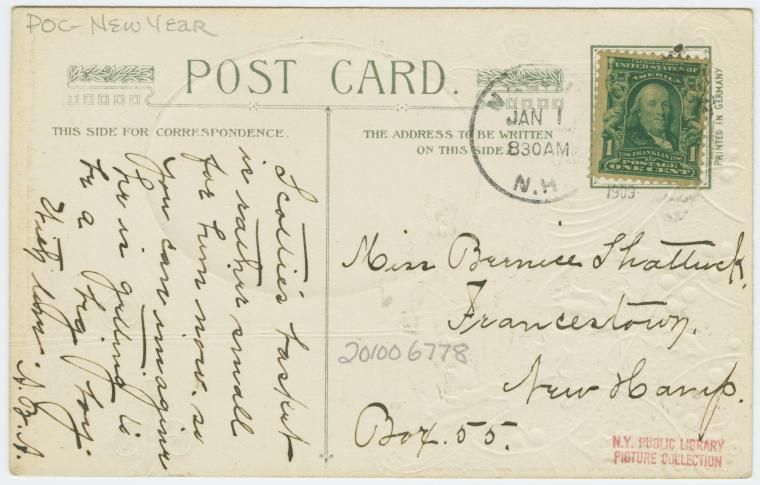 POC- NEW YEAR
POST CARD.
THIS SIDE FOR CORRESPONDENCE.
THE ADDRESS TO BE WRITTEN
ON THIS SIDE
JAN 1
830AM
N.H.
1909
SERIES 1902
UNITED STATES OF
AMERICA
1 FRANKLIN 1
POSTAGE
ONE CENT
PRINTED IN GERMANY
Scottie's basket
is rather small
for him now. so
you can imagine
he is getting to
be a big boy.
With love. A.B.A.
Miss Bernice Shattuck.
Francestown.
New Hamp.
Box. 55.
201006778
N.Y. PUBLIC LIBRARY
PICTURE COLLECTION